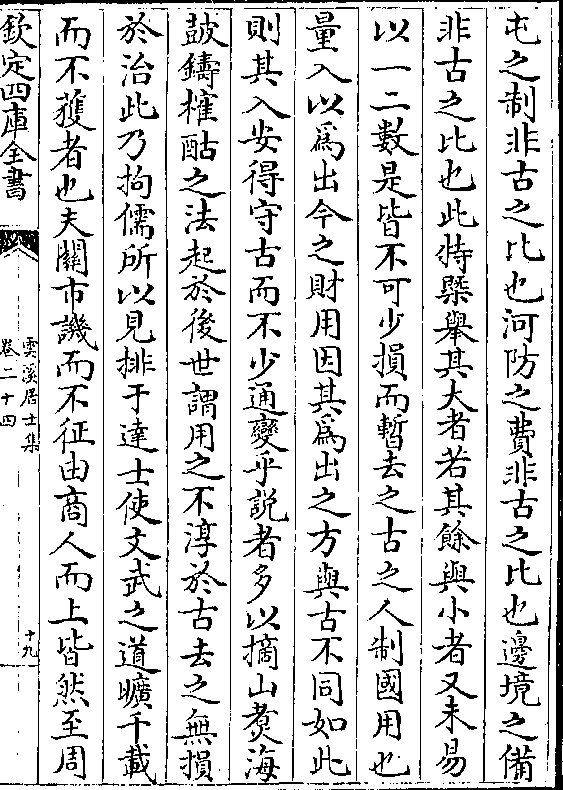 屯之制非古之比也河防之費非古之比也邊境之備
非古之比也此特槩舉其大者若其餘與小者又未易
以一二數是皆不可少損而暫去之古之人制國用也
量入以為出今之財用因其為出之方與古不同如此
則其入安得守古而不少通變乎説者多以摘山煑海
鼓鑄榷酤之法起於後世謂用之不淳於古去之無損
於治此乃拘儒所以見排于達士使文武之道曠千載
而不獲者也夫關市譏而不征由商人而上皆然至周
欽定四庫全書
雲溪居士集
卷二十四
十九